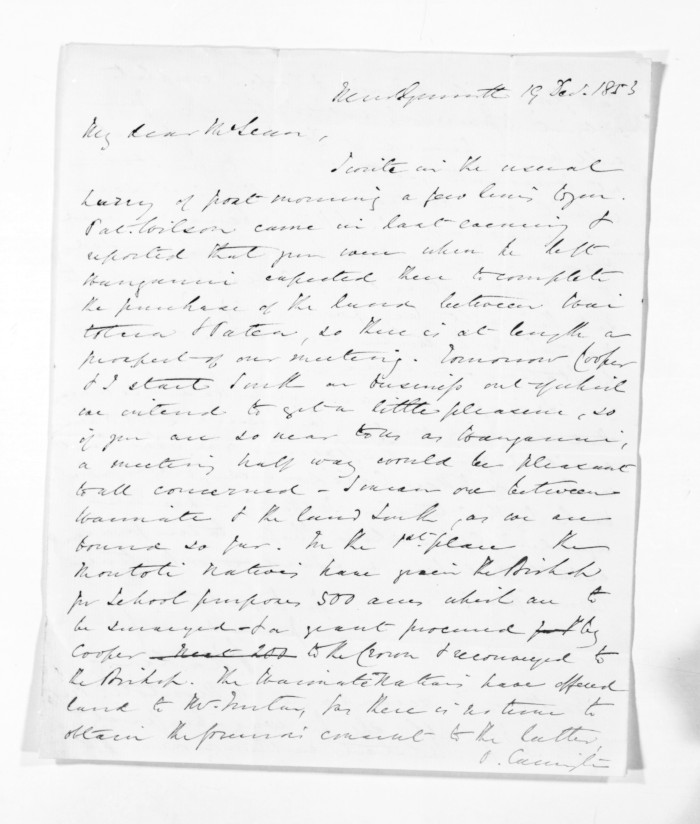 New Plymouth 19 Dec. 1853
My dear McLean,
I write in the usual
hurry of post morning a few lines to you.
Pat. Wilson came in last evening &
reported that you were when he left
Wanganui expected there to complete
the purchase of the land between Wai
totara & Patea, so there is at length a
prospect of our meeting. Tomorrow Cooper
& I start South on business out of which
we intend to get a little pleasure, so
if you are so near to us as Wanganui,
a meeting half way would be pleasant
to all concerned - I mean one between
Waimate & the land South, as we are
bound so far. In the 1st. place the
Moutoti Natives have given the Bishop
for School purposes 500 acres which are to
be surveyed & a grant procured by
Cooper to the Crown & reconveyed to
the Bishop. The Waimate Natives have offered
land to Mr. as there is no time to
obtain the consent to the latter,